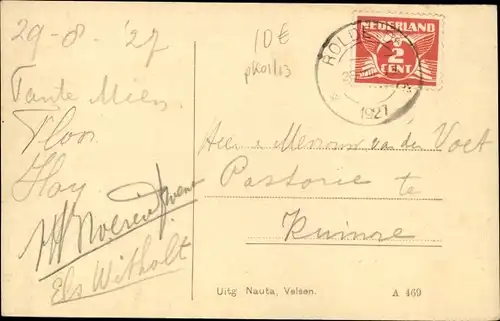 29-8-'27
Tante Mien
Floor
Hay
Els Witholt
10 €
ROLDE
1927
NEDERLAND
2
CENT
Heer & Mevrouw van der Voet
Pastorie te
Kuinre
Uitg Nauta, Velsen.
A 469